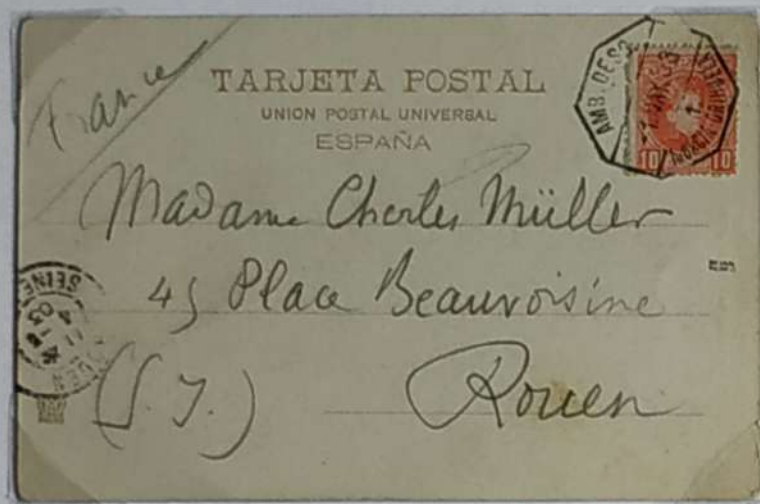 France
TARJETA POSTAL
UNION POSTAL UNIVERSAL
ESPAÑA
AMB. DESC
10 10
Madame Charles Müller
45 Place Beauvoisine
Rouen
(S. I.)
SEINE